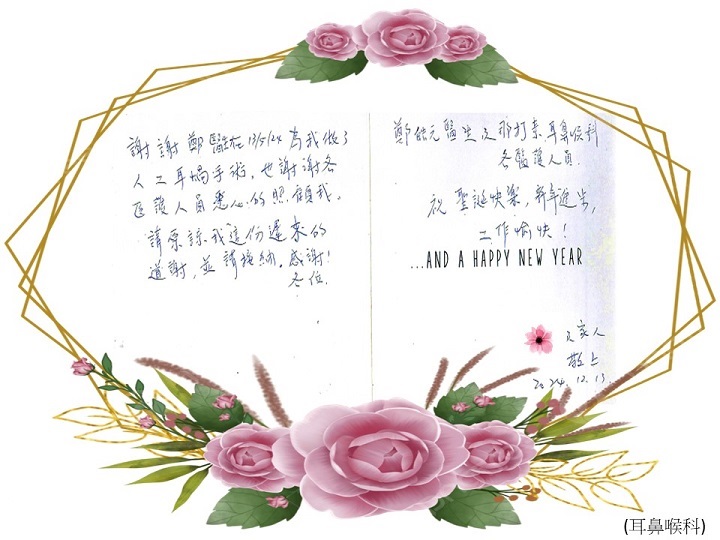 謝謝鄭醫生在13/5/24為我做了
人工耳蝸手術，也謝謝各
醫護人員悉心的照顧我。
請原諒我這份遲來的
道謝，並請接納。感謝！
各位.
鄭 元醫生及那打素耳鼻喉科
各醫護人員.
祝 聖誕快樂，新年進步，
工作愉快！
...AND A HAPPY NEW YEAR
及家人
敬上
2024.12.13.
(耳鼻喉科)